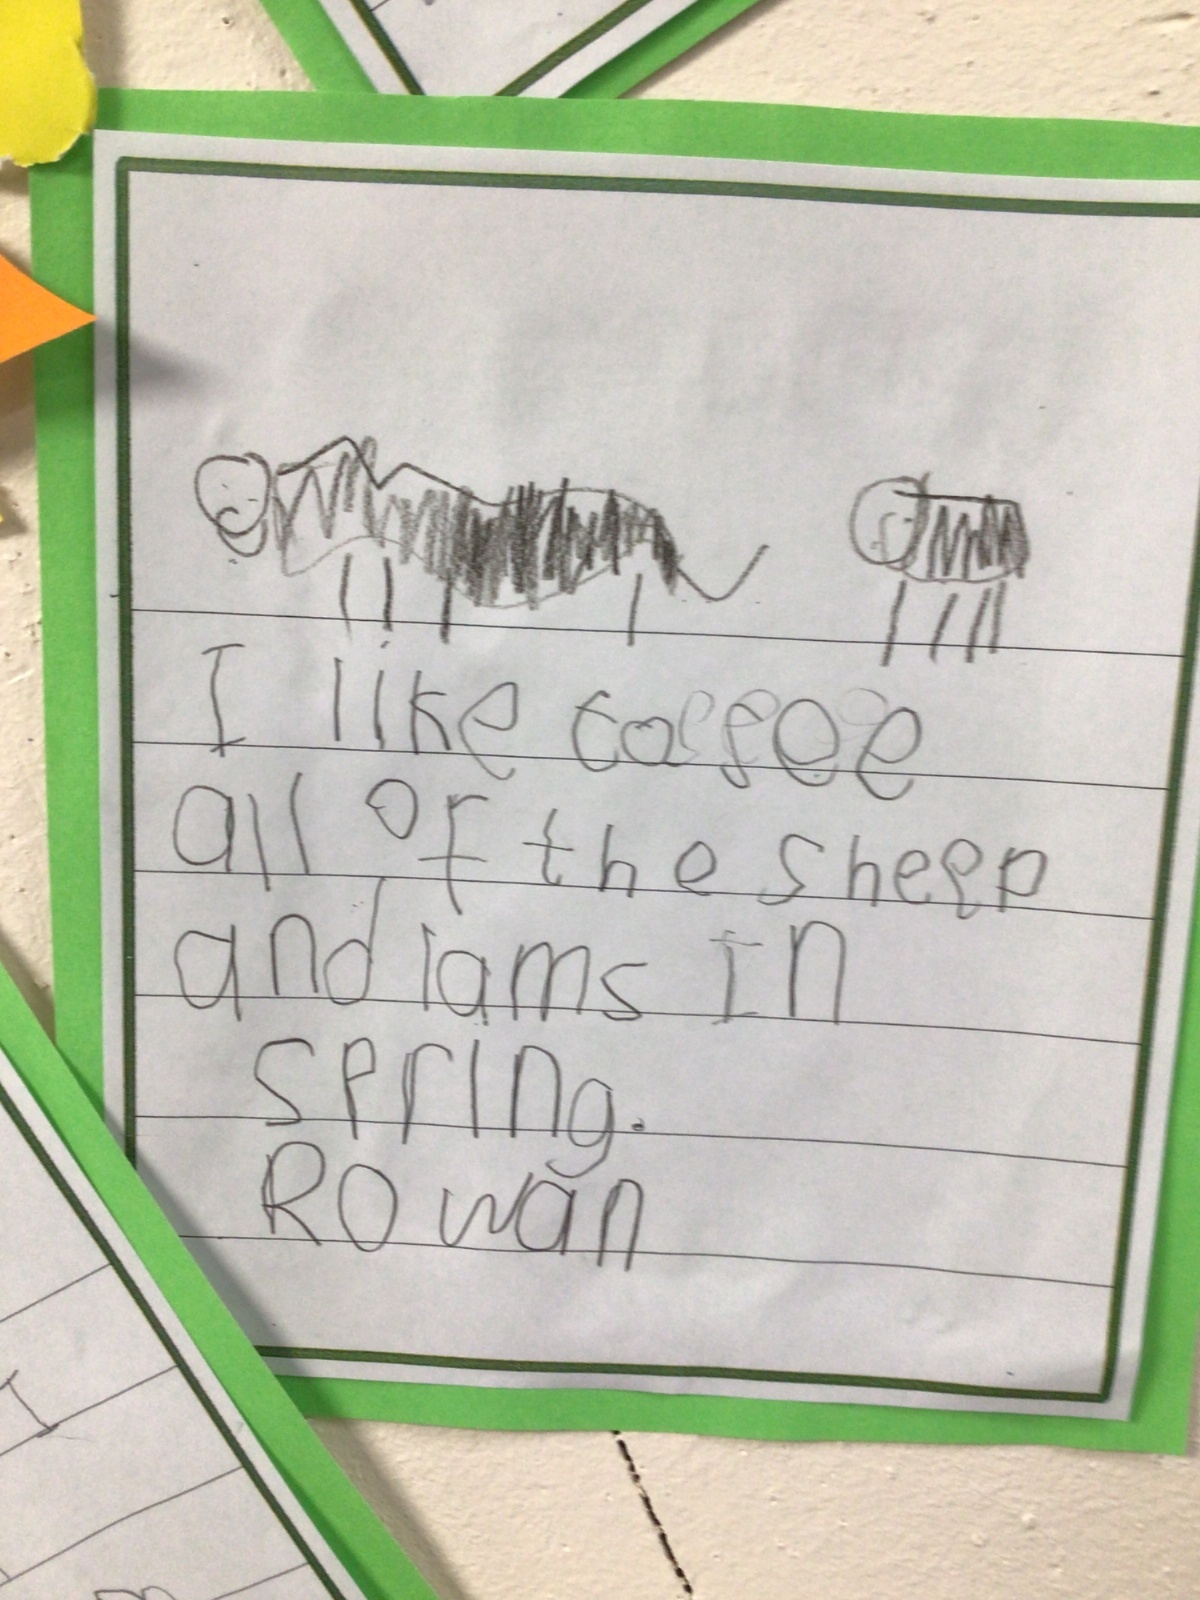 I like tosee
all of the sheep
and lams in
spring.
Rowan
I